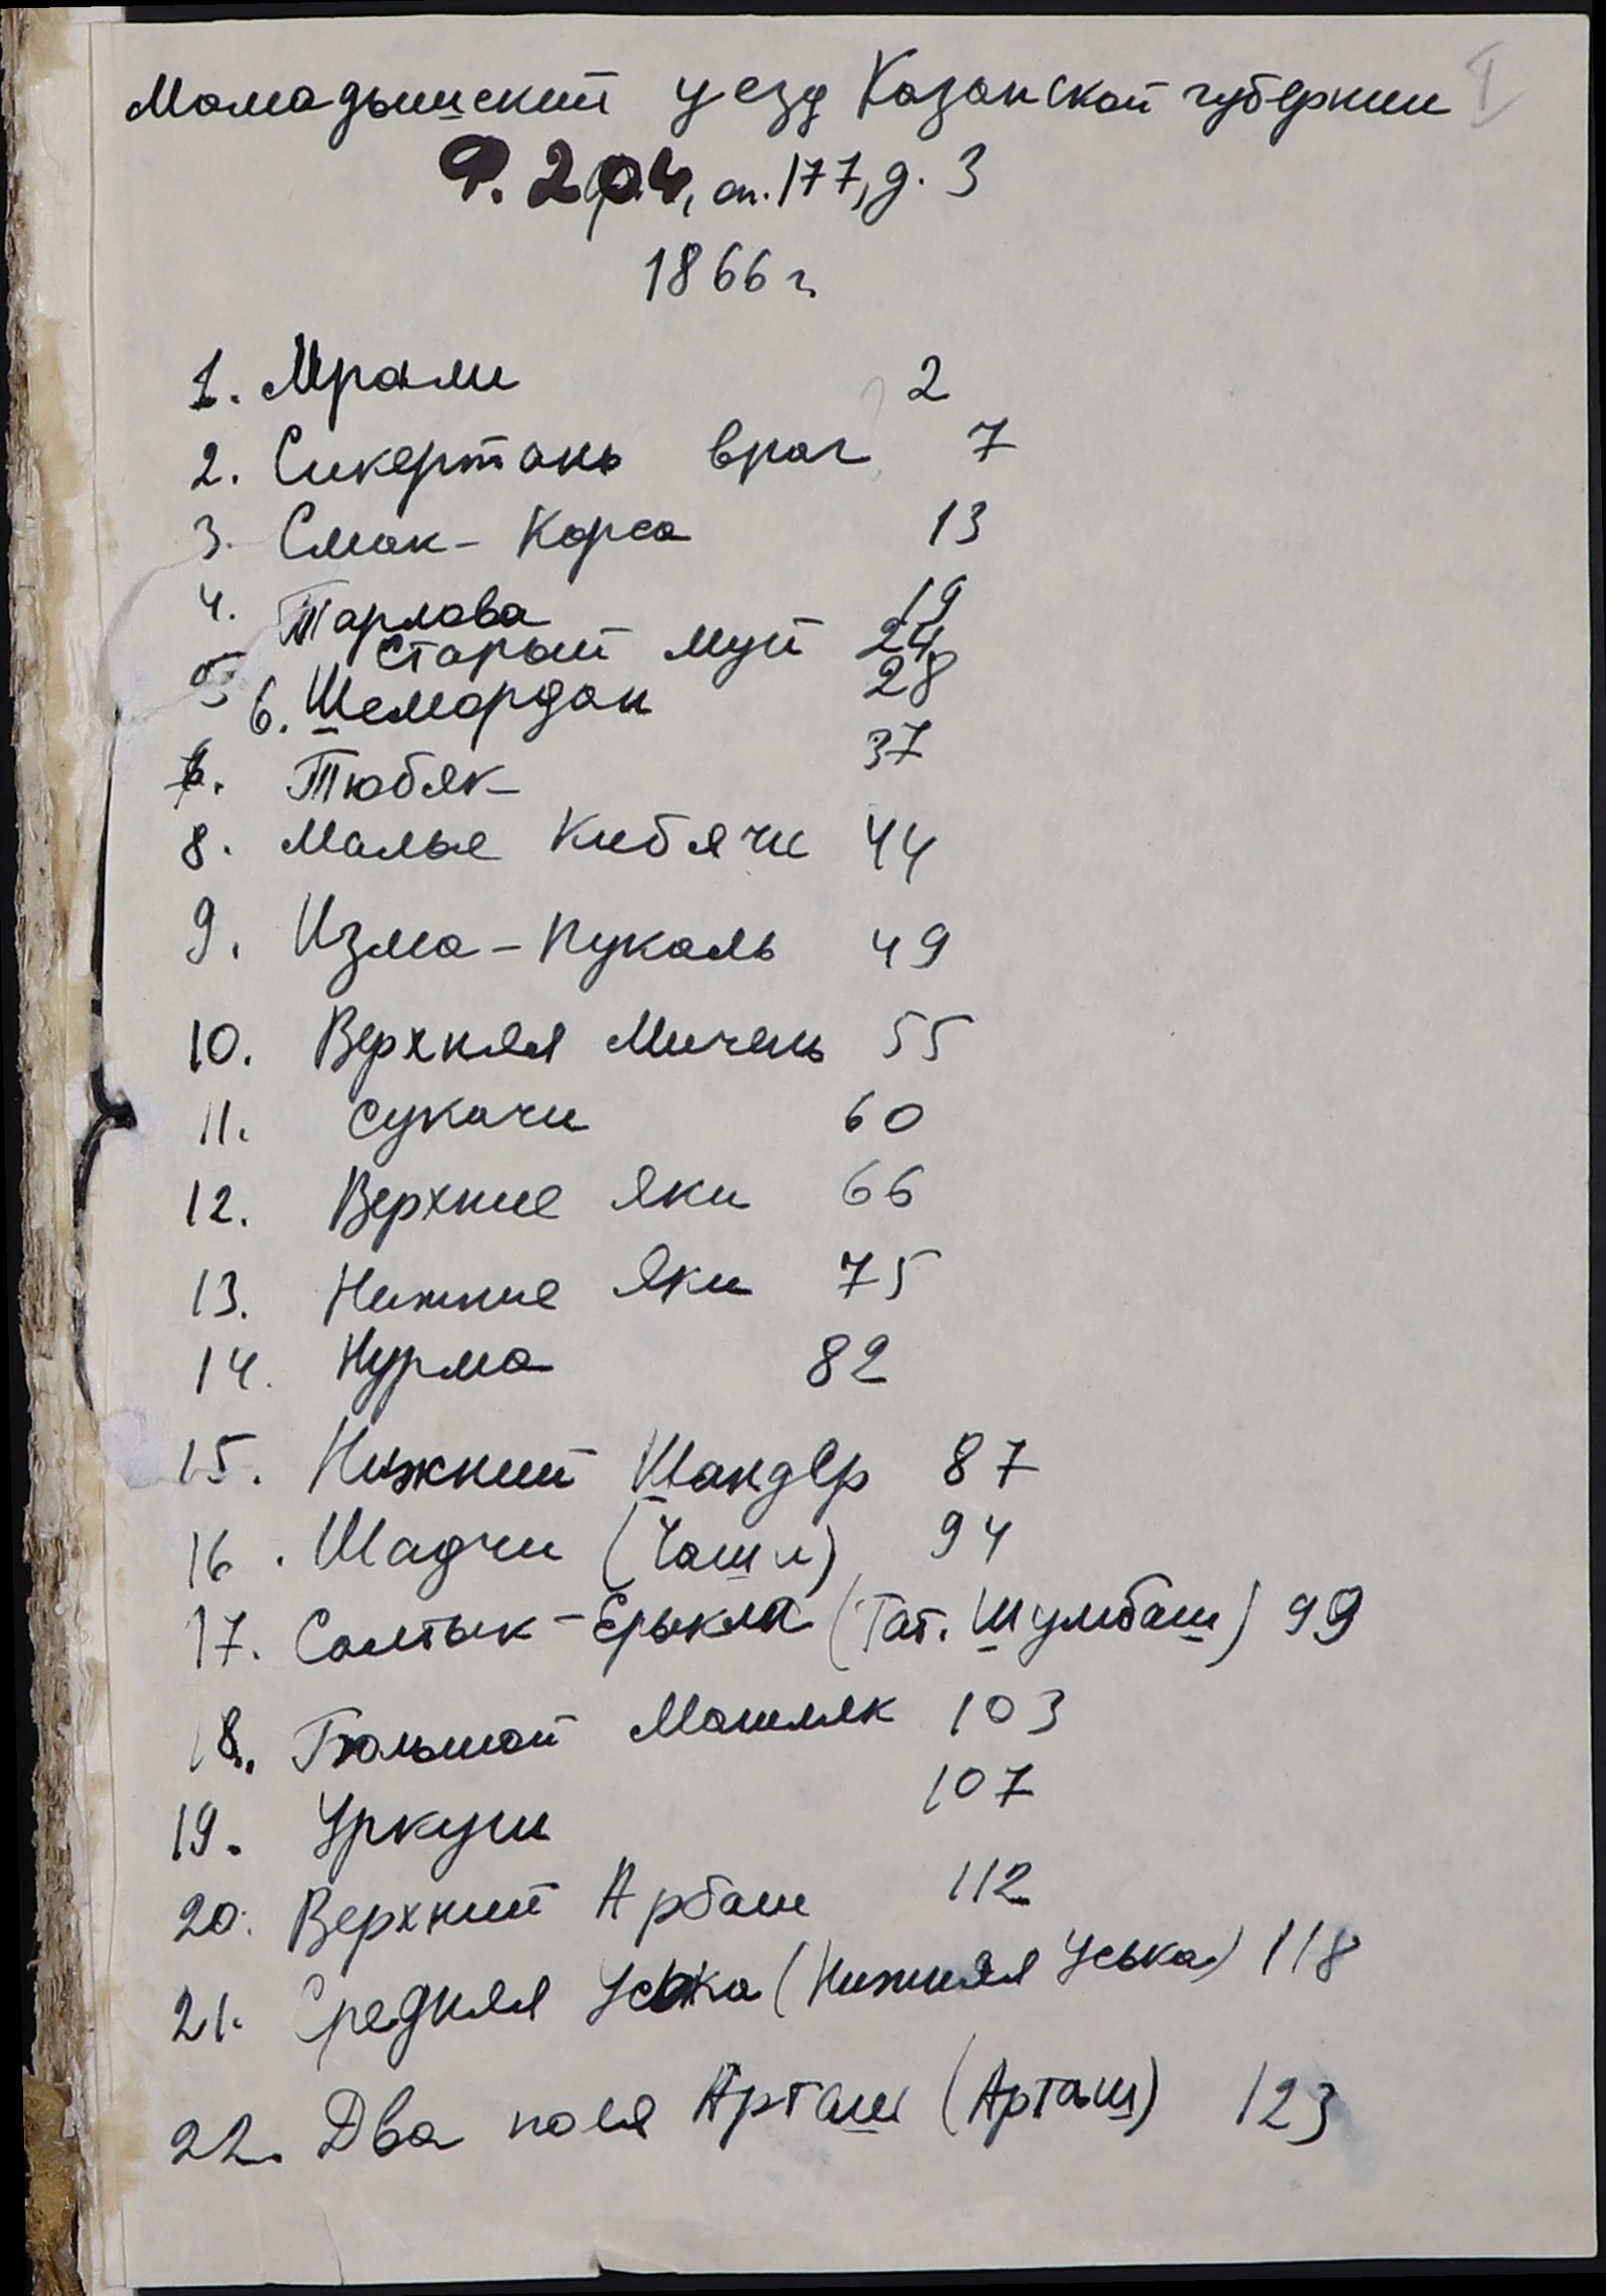 Мамадышский уезд Казанской губернии I
Ф. 204, оп. 177, д. 3
1866 г.
1. Мрали 2
2. Сикертань враг 7
3. Смак-Корса 13
4. Тарлава 19
5 Старый муй 24
6. Шемордан 28
7. Тюбяк 37
8. Малые Кибячи 44
9. Изма-Пукаль 49
10. Верхняя Мичань 55
11. Сукачи 60
12. Верхние Яки 66
13. Нижние Яки 75
14. Нурма 82
15. Нижний Шандер 87
16. Шадчи (Чаши) 94
17. Салтык-Ерыкла (Тат. Шумбаш) 99
18. Большой Машляк 103
19. Уркуши 107
20. Верхний Арбаш 112
21. Средняя Уська (Нижняя Уська) 118
22. Два поля Арташ (Арташ) 123